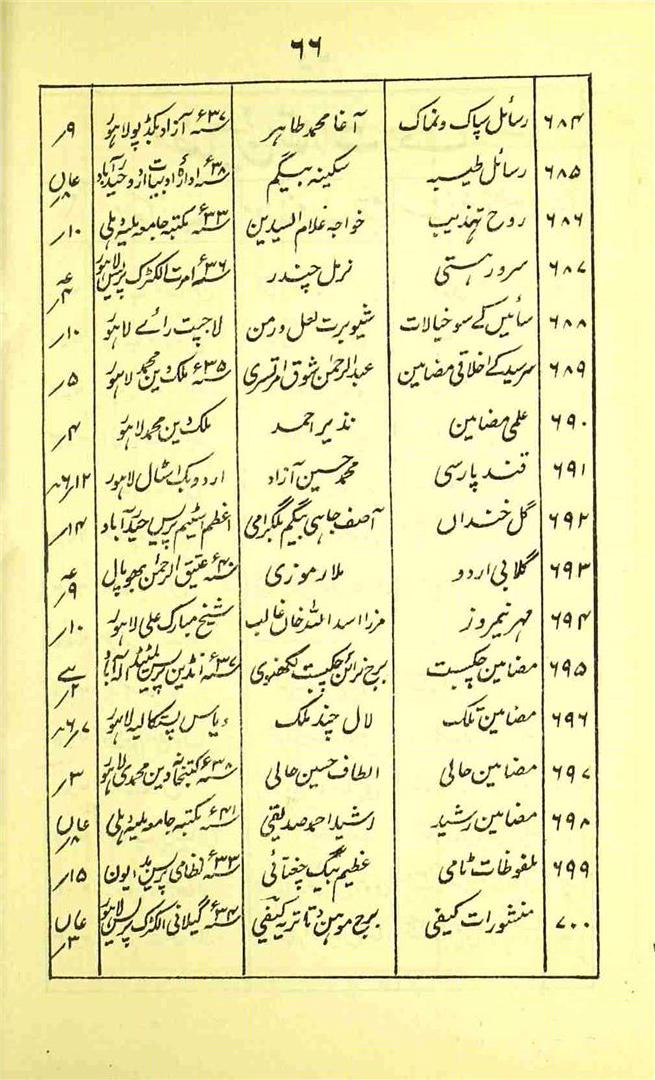 ۶۶
۶۸۴ رسائل سپاک ونماک آغا محمد طاہر ۳۷ء آزاد بکڈپو لاہور ۹ر
۶۸۵ رسائل طیبہ سکینہ بیگم ۳۸ء ادارۂ ادبیات اردو حیدرآباد
۶۸۶ روح تہذیب خواجہ غلام السیدین ۳۳ء مکتبہ جامعہ ملیہ دہلی ۱۰ر
۶۸۷ سرور ہستی نرمل چندر ۳۶ء امرت الکٹرک پریس لاہور
۶۸۸ سائیں کے سو خیالات شیوبرت لعل ورمن لاجپت رائے لاہور ۱۰ر
۶۸۹ سرسید کے اخلاقی مضامین عبدالرحمٰن شوق امرتسری ۳۵ء ملک دین محمد لاہور ۵ر
۶۹۰ علمی مضامین نذیر احمد ملک دین محمد لاہور ۴ر
۶۹۱ قند پارسی محمد حسین آزاد اردو بک اسٹال لاہور
۶۹۲ گل خنداں آصف جاہی بیگم بلگرامی اعظم اسٹیم پریس حیدرآباد ۱۴ر
۶۹۳ گلابی اردو ملا رموزی ۴۰ء عتیق الرحمٰن بھوپال
۶۹۴ مہر نیمروز مرزا اسد اللہ خاں غالب شیخ مبارک علی لاہور ۱۰ر
۶۹۵ مضامین چکبست برج نرائن چکبست لکھنوی ۳۷ء انڈین پریس لمیٹیڈ الہ آباد
۶۹۶ مضامین تلک لال چند ملک ویاس پستکالیہ لاہور
۶۹۷ مضامین حالی الطاف حسین حالی ۳۸ء کتبخانہ دین محمدی لاہور ۳ر
۶۹۸ مضامین رشید رشید احمد صدیقی ۴۱ء مکتبہ جامعہ ملیہ دہلی
۶۹۹ ملفوظات ٹامی عظیم بیگ چغتائی ۳۳ء نظامی پریس بدایون ۱۵ر
۷۰۰ منشورات کیفی برج موہن دتاتریہ کیفی ۳۴ء گیلانی الکٹرک پریس لاہور